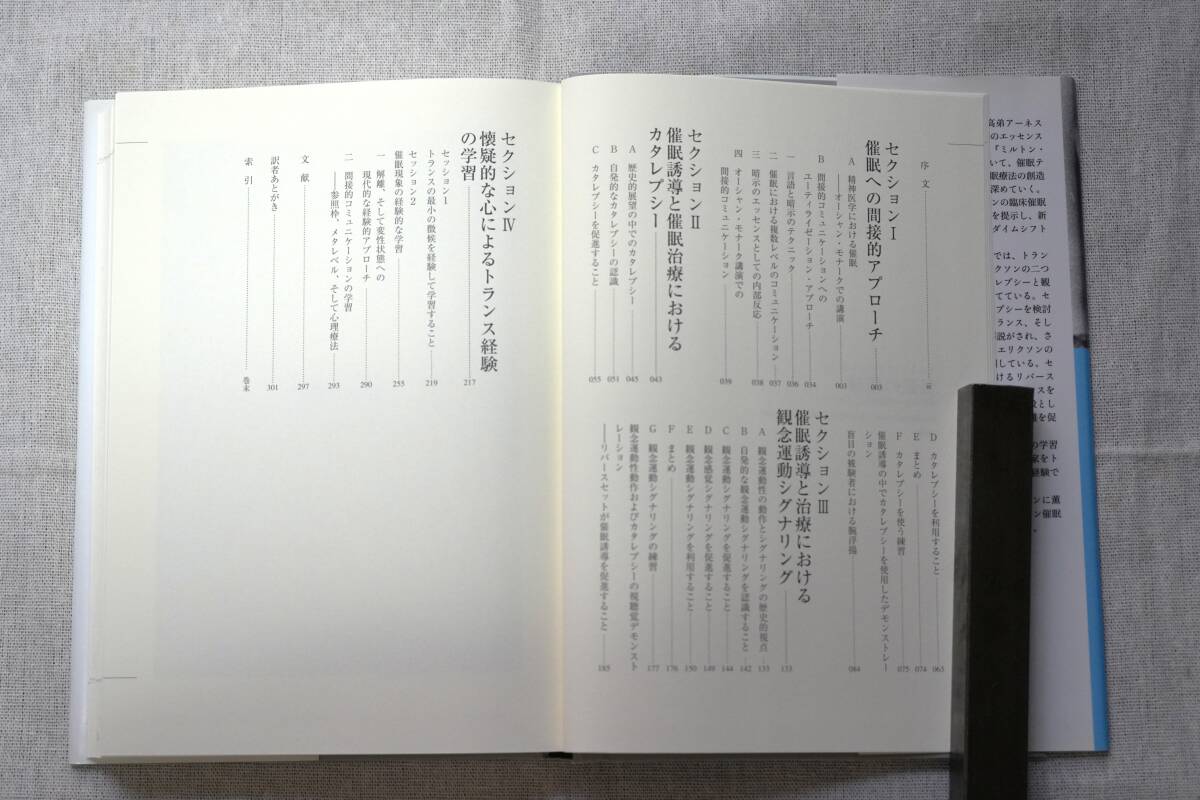 序文 iii
セクションI
催眠への間接的アプローチ 003
A 精神医学における催眠
——オーシャン・モナークでの講演 003
B 間接的コミュニケーションへの
ユーティライゼーション・アプローチ 034
一 言語と暗示のテクニック 036
二 催眠における複数レベルのコミュニケーション 037
三 暗示のエッセンスとしての内部反応 038
四 オーシャン・モナーク講演での
間接的コミュニケーション 039
セクションII
催眠誘導と催眠治療における
カタレプシー 043
A 歴史的展望の中でのカタレプシー 045
B 自発的なカタレプシーの認識 051
C カタレプシーを促進すること 055
D カタレプシーを利用すること 063
E まとめ 074
F カタレプシーを使う練習 075
催眠誘導の中でカタレプシーを使用したデモンストレー
ション
盲目の被験者における腕浮揚 084
セクションIII
催眠誘導と治療における
観念運動シグナリング 133
A 観念運動性の動作とシグナリングの歴史的視点 133
B 自発的な観念運動シグナリングを認識すること 142
C 観念運動シグナリングを促進すること 144
D 観念感覚シグナリングを促進すること 149
E 観念運動シグナリングを利用すること 150
F まとめ 176
G 観念運動シグナリングの練習 177
観念運動性動作およびカタレプシーの視聴覚デモンスト
レーション
——リバースセットが催眠誘導を促進すること 185
セクションIV
懐疑的な心によるトランス経験
の学習 217
セッション1
トランスの最小の徴候を経験して学習すること 219
セッション2
催眠現象の経験的な学習 255
一 解離、そして変性状態への
現代的な経験的アプローチ 290
二 間接的コミュニケーションの学習
——参照枠、メタレベル、そして心理療法 293
文献 297
訳者あとがき 301
索引 巻末
高弟アーネス
のエッセンス
『ミルトン・
いて、催眠テ
眠療法の創造
深めていく。
ンの臨床催眠
を提示し、新
ダイムシフト
では、トラン
クソンの二つ
レプシーと観
てている。セ
プシーを検討
ランス、そし
説がされ、さ
エリクソンの
している。セ
けるリバース
スを
とし
を促
の学習
をト
経験で
ンに薫
ン催眠
。